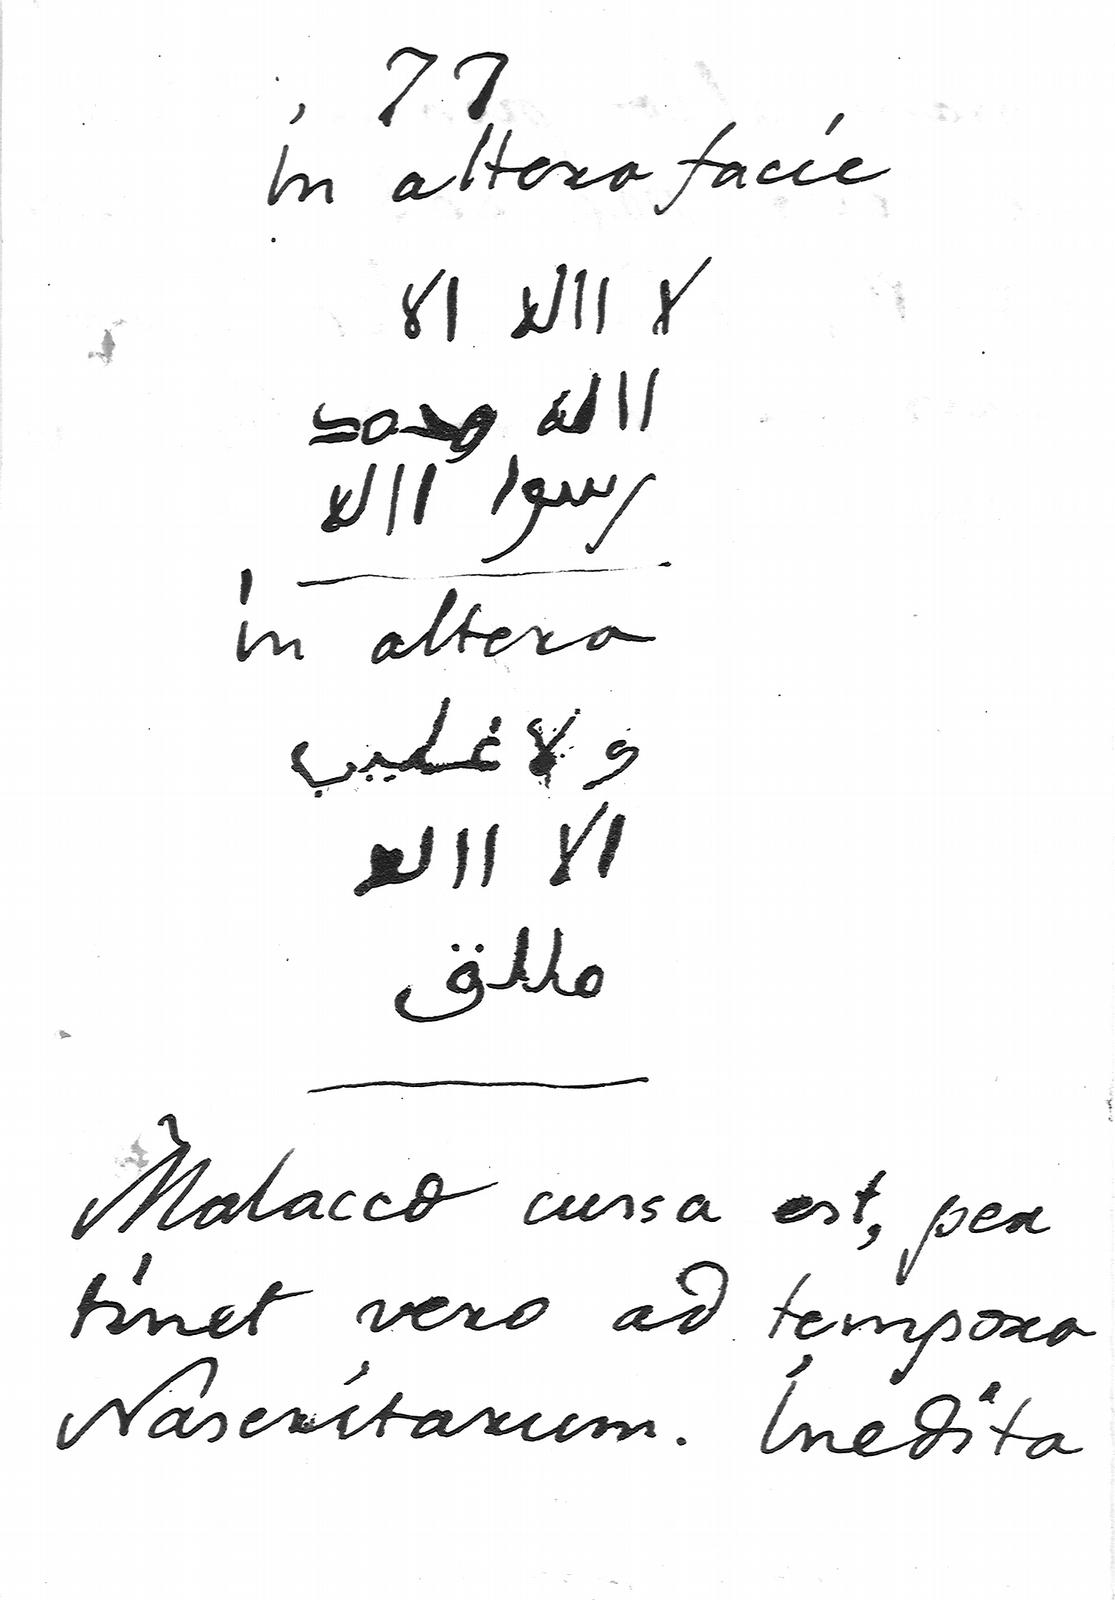 77
in altera facie
لا االه الا
االله محمد
رسوا االه
in altera
و لا غليب
الا االه
ملاق
Malacca cussa est, per
tinet vero ad tempora
Naseritarum. Inedita